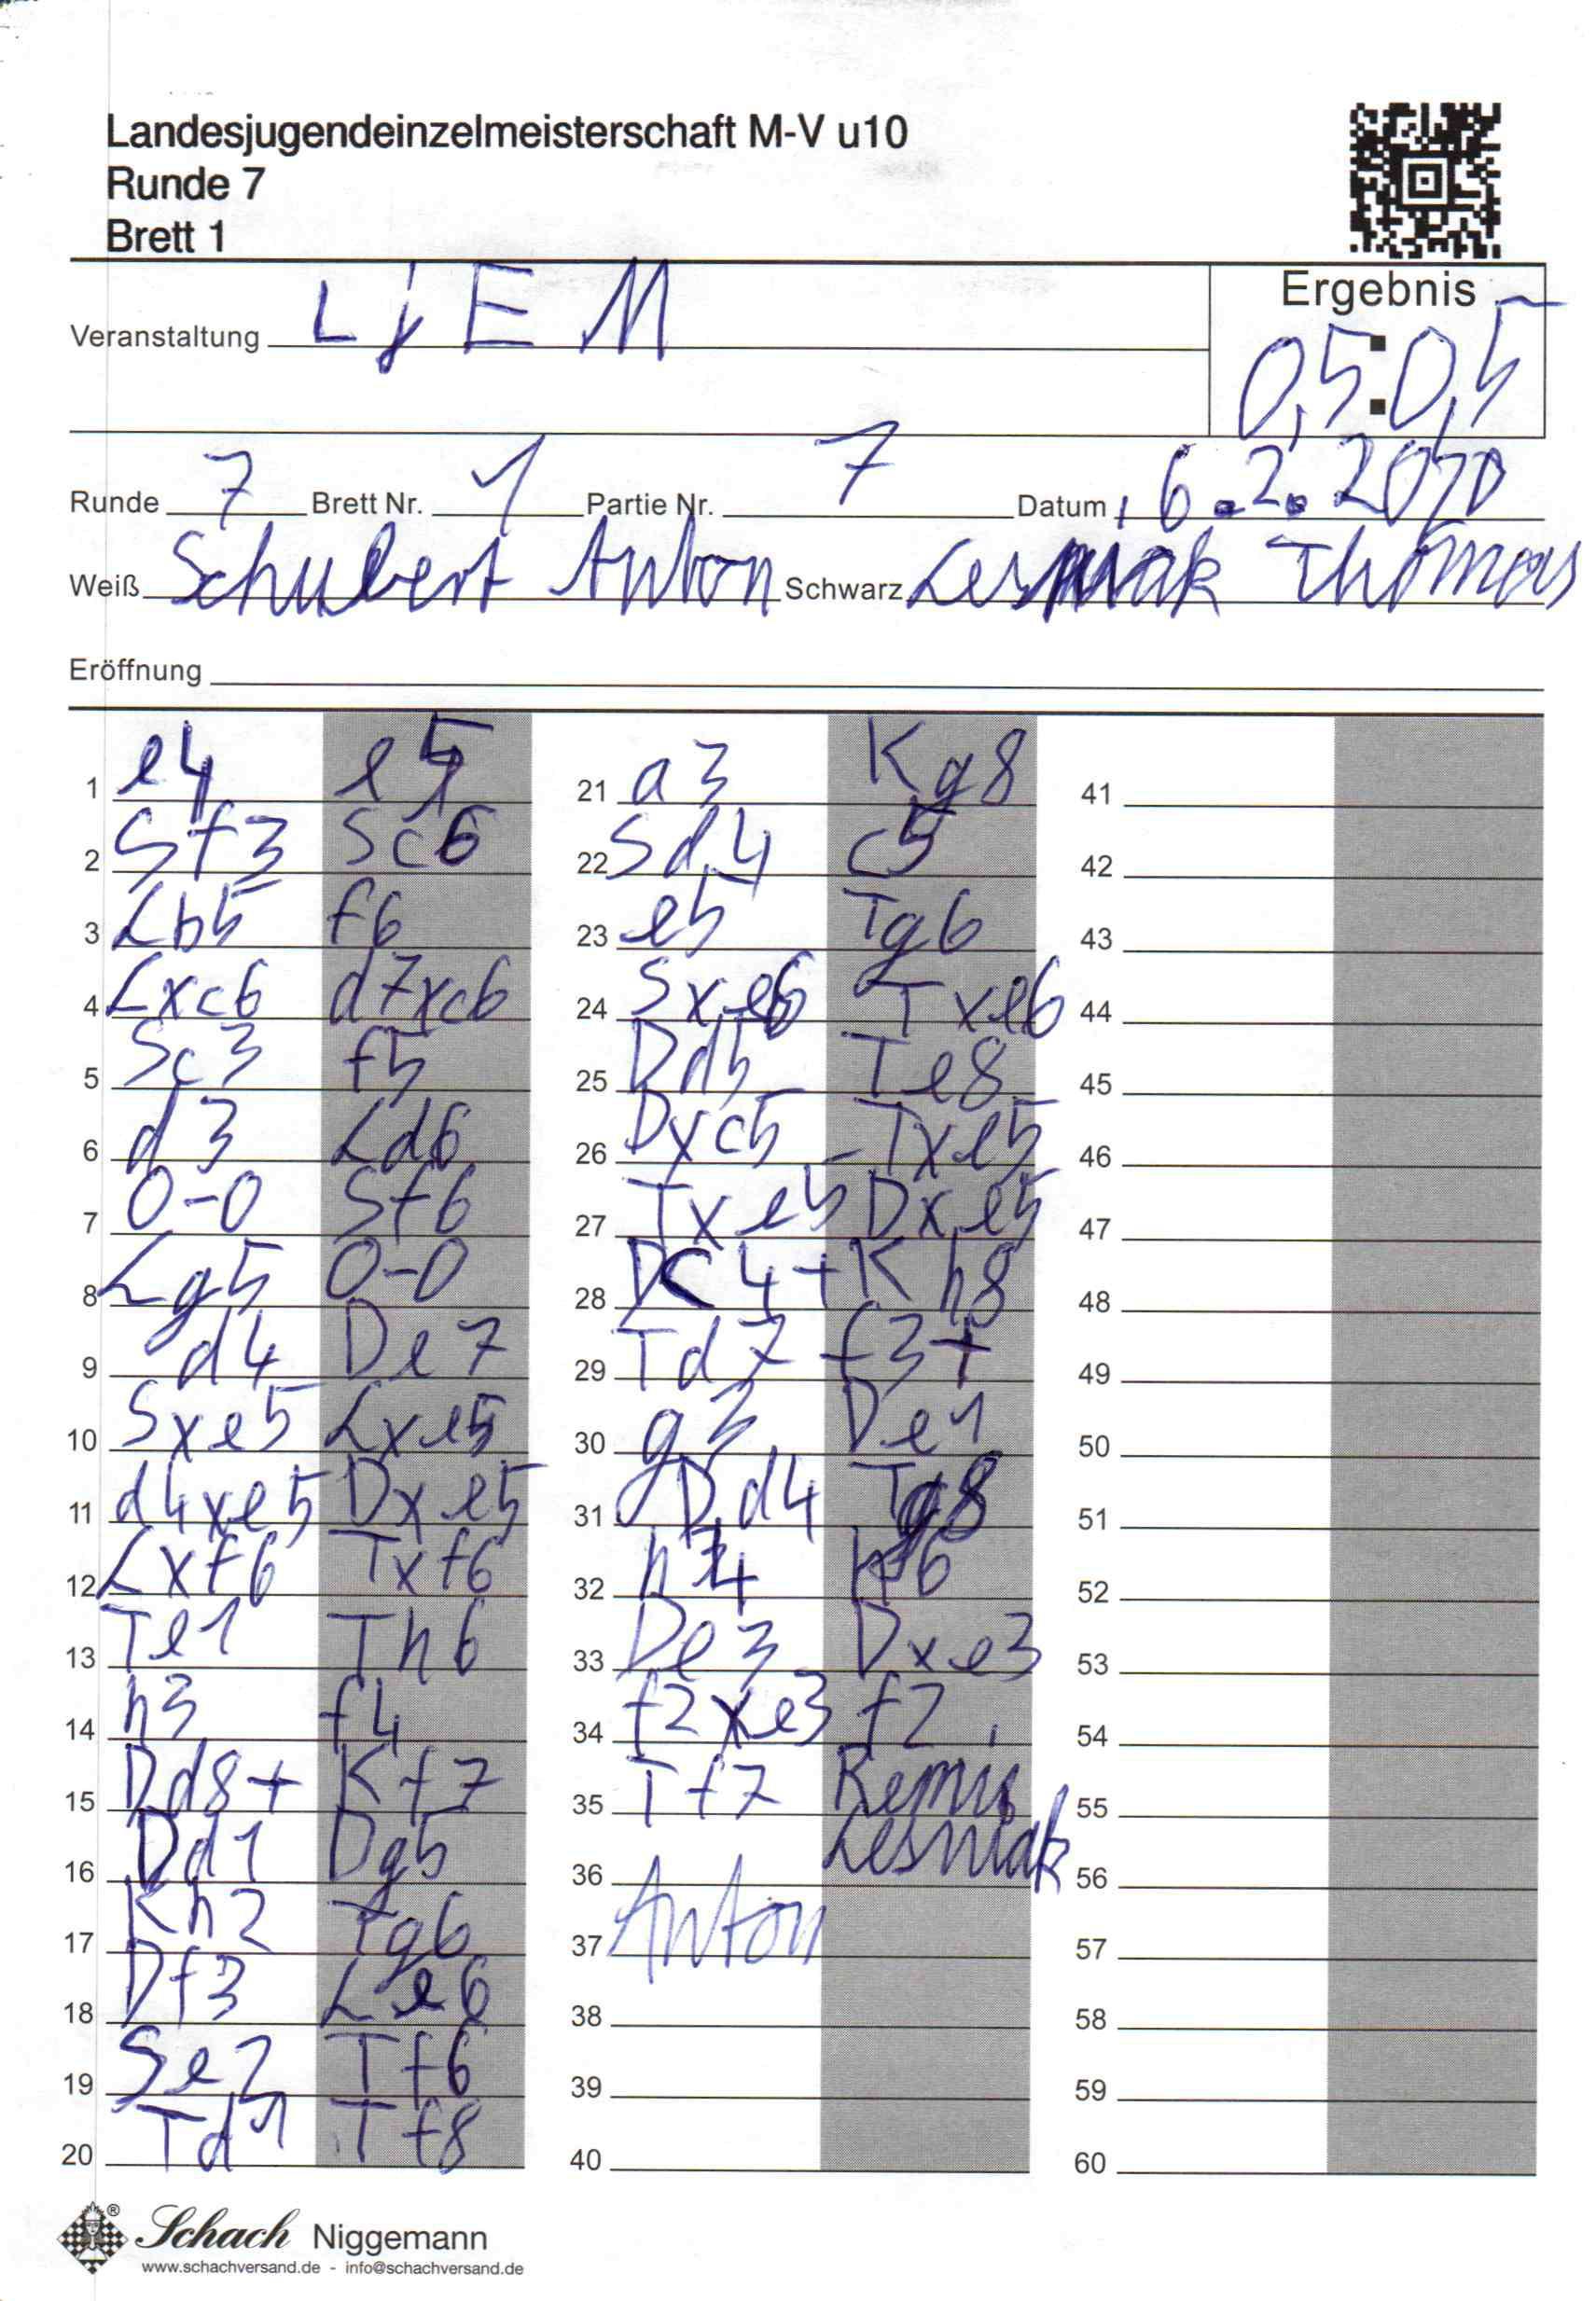 Landesjugendeinzelmeisterschaft M-V u10
Runde 7
Brett 1
Ergebnis
Veranstaltung LjEM
0,5:0,5
Runde 7 Brett Nr. 1 Partie Nr. 7 Datum 6.2.2010
Weiß Schubert Anton Schwarz Lesniak Thomas
Eröffnung
1 e4 e5
2 Sf3 Sc6
3 Lb5 f6
4 Lxc6 d7xc6
5 Sc3 f5
6 d3 Ld6
7 0-0 Sf6
8 Lg5 0-0
9 d4 De7
10 Sxe5 Lxe5
11 d4xe5 Dxe5
12 Lxf6 Txf6
13 Te1 Th6
14 h3 f4
15 Dd8+ Kf7
16 Dd1 Dg5
17 Kh2 Tg6
18 Df3 Le6
19 Se2 Tf6
20 Td1 Tf8
21 a3 Kg8
22 Sd4 c5
23 e5 Tg6
24 Sxe6 Txe6
25 Dd5 Te8
26 Dxc5 Txe5
27 Txe5 Dxe5
28 Dc4+ Kh8
29 Td7 f3+
30 g3 De1
31 Dd4 Tg8
32 h4 h6
33 De3 Dxe3
34 f2xe3 f2
35 Tf7 Remis
36 Lesniak
37 Anton
38
39
40
41
42
43
44
45
46
47
48
49
50
51
52
53
54
55
56
57
58
59
60
® Schach Niggemann
www.schachversand.de - info@schachversand.de